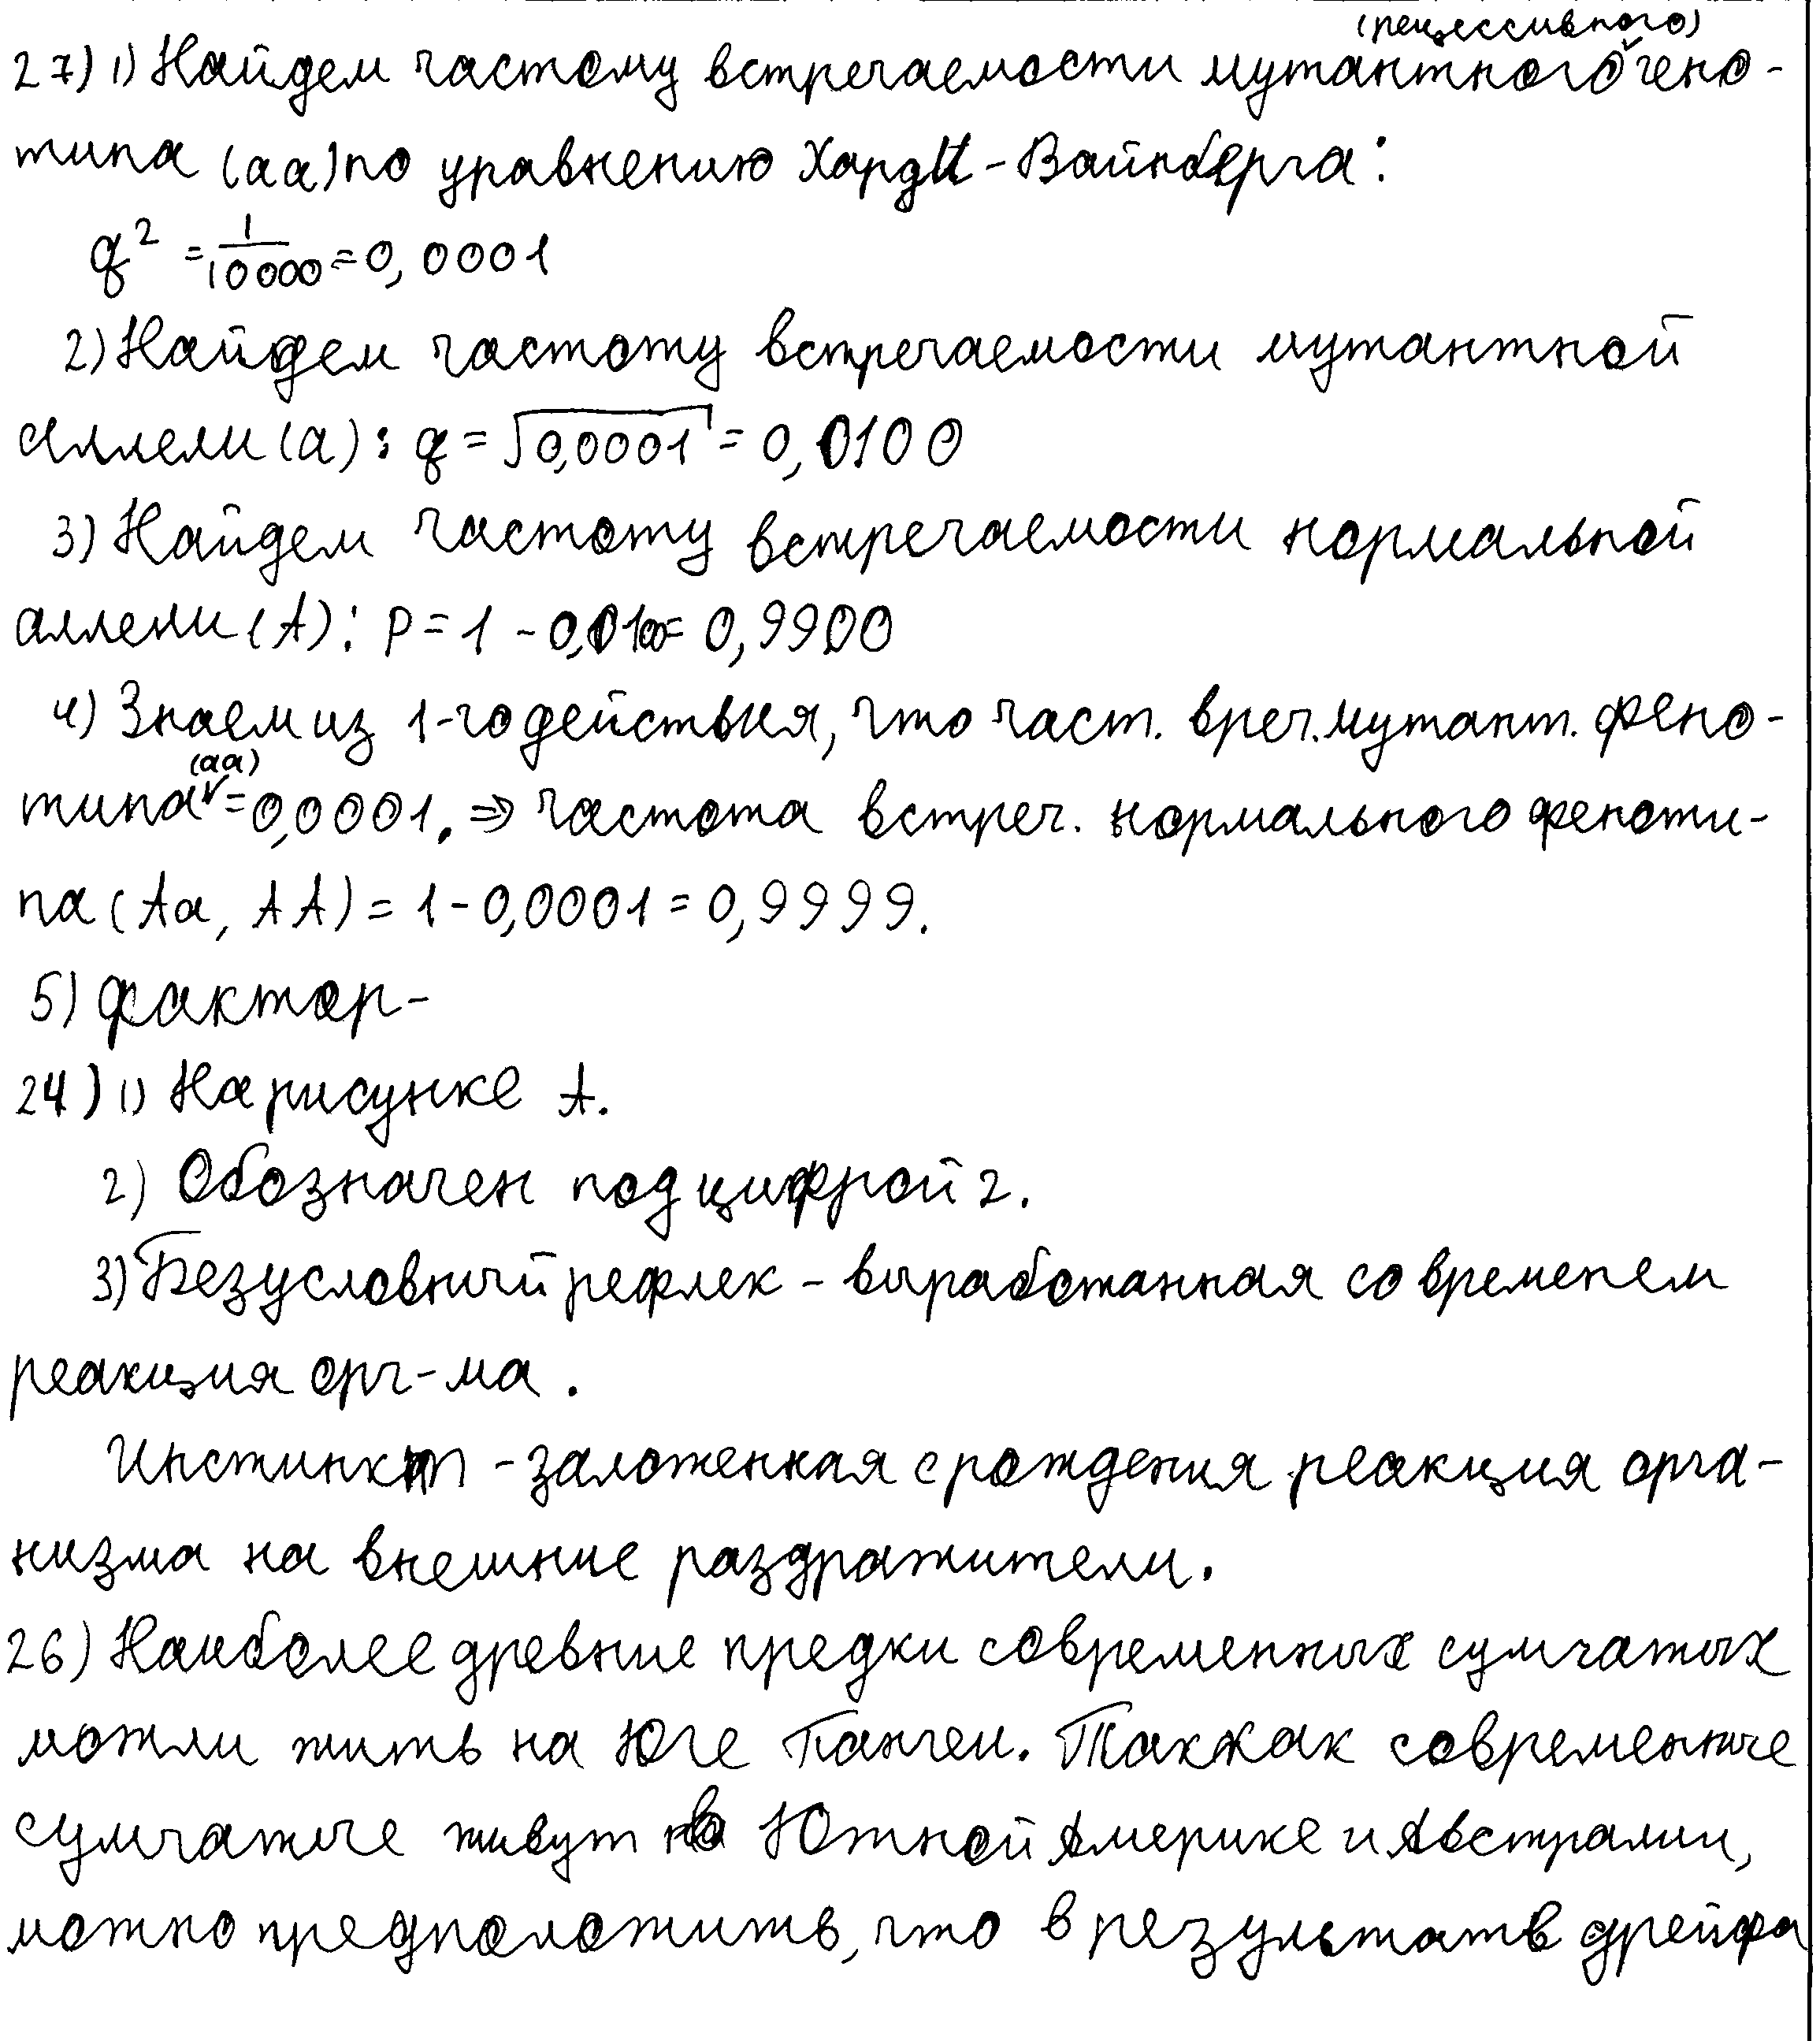 (рецессивного)
27) 1) Найдем частому встречаемости мутантного гено-
типа (аа) по уравнению Харди-Вайнберга:
q² = 1/10000 = 0,0001
2) Найдем частоту встречаемости мутантной
аллели (а): q = √0,0001 = 0,0100
3) Найдем частоту встречаемости нормальной
аллели (А): p = 1 - 0,0100 = 0,9900
4) Знаем из 1-го действия, что част. вреч. мутант. фено-
(аа)
типа = 0,0001. ⇒ частота встреч. нормального феноти-
па (Аа, АА) = 1 - 0,0001 = 0,9999.
5) фактор-
24) 1) На рисунке А.
2) Обозначен под цифрой 2.
3) Безусловный рефлек - выработанная со временем
реакция орг-ма.
Инстинкт - заложенная с рождения реакция орга-
низма на внешние раздражители.
26) Наиболее древние предки современных сумчатых
можли жить на Юге Пангеи. Так как современные
сумчатые живут в Южной Америке и Австралии,
можно предположить, что в результатв дрейфа